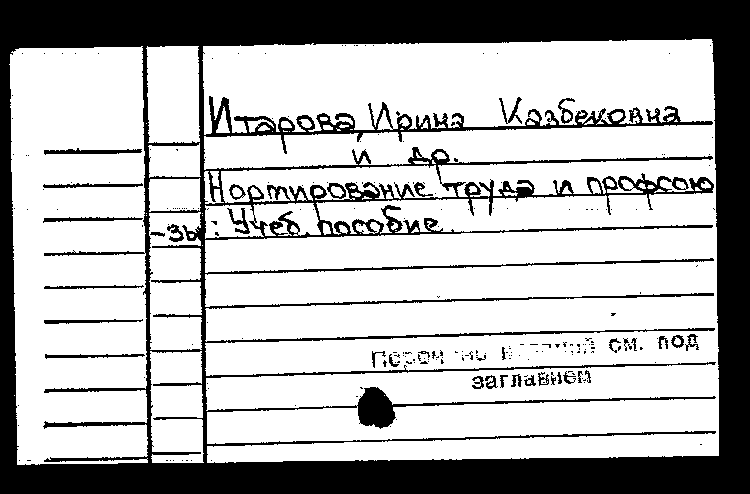 Итарова, Ирина Казбековна
и др.
Нормирование труда и профсою
-зы : Учеб. пособие.
см. под
заглавием